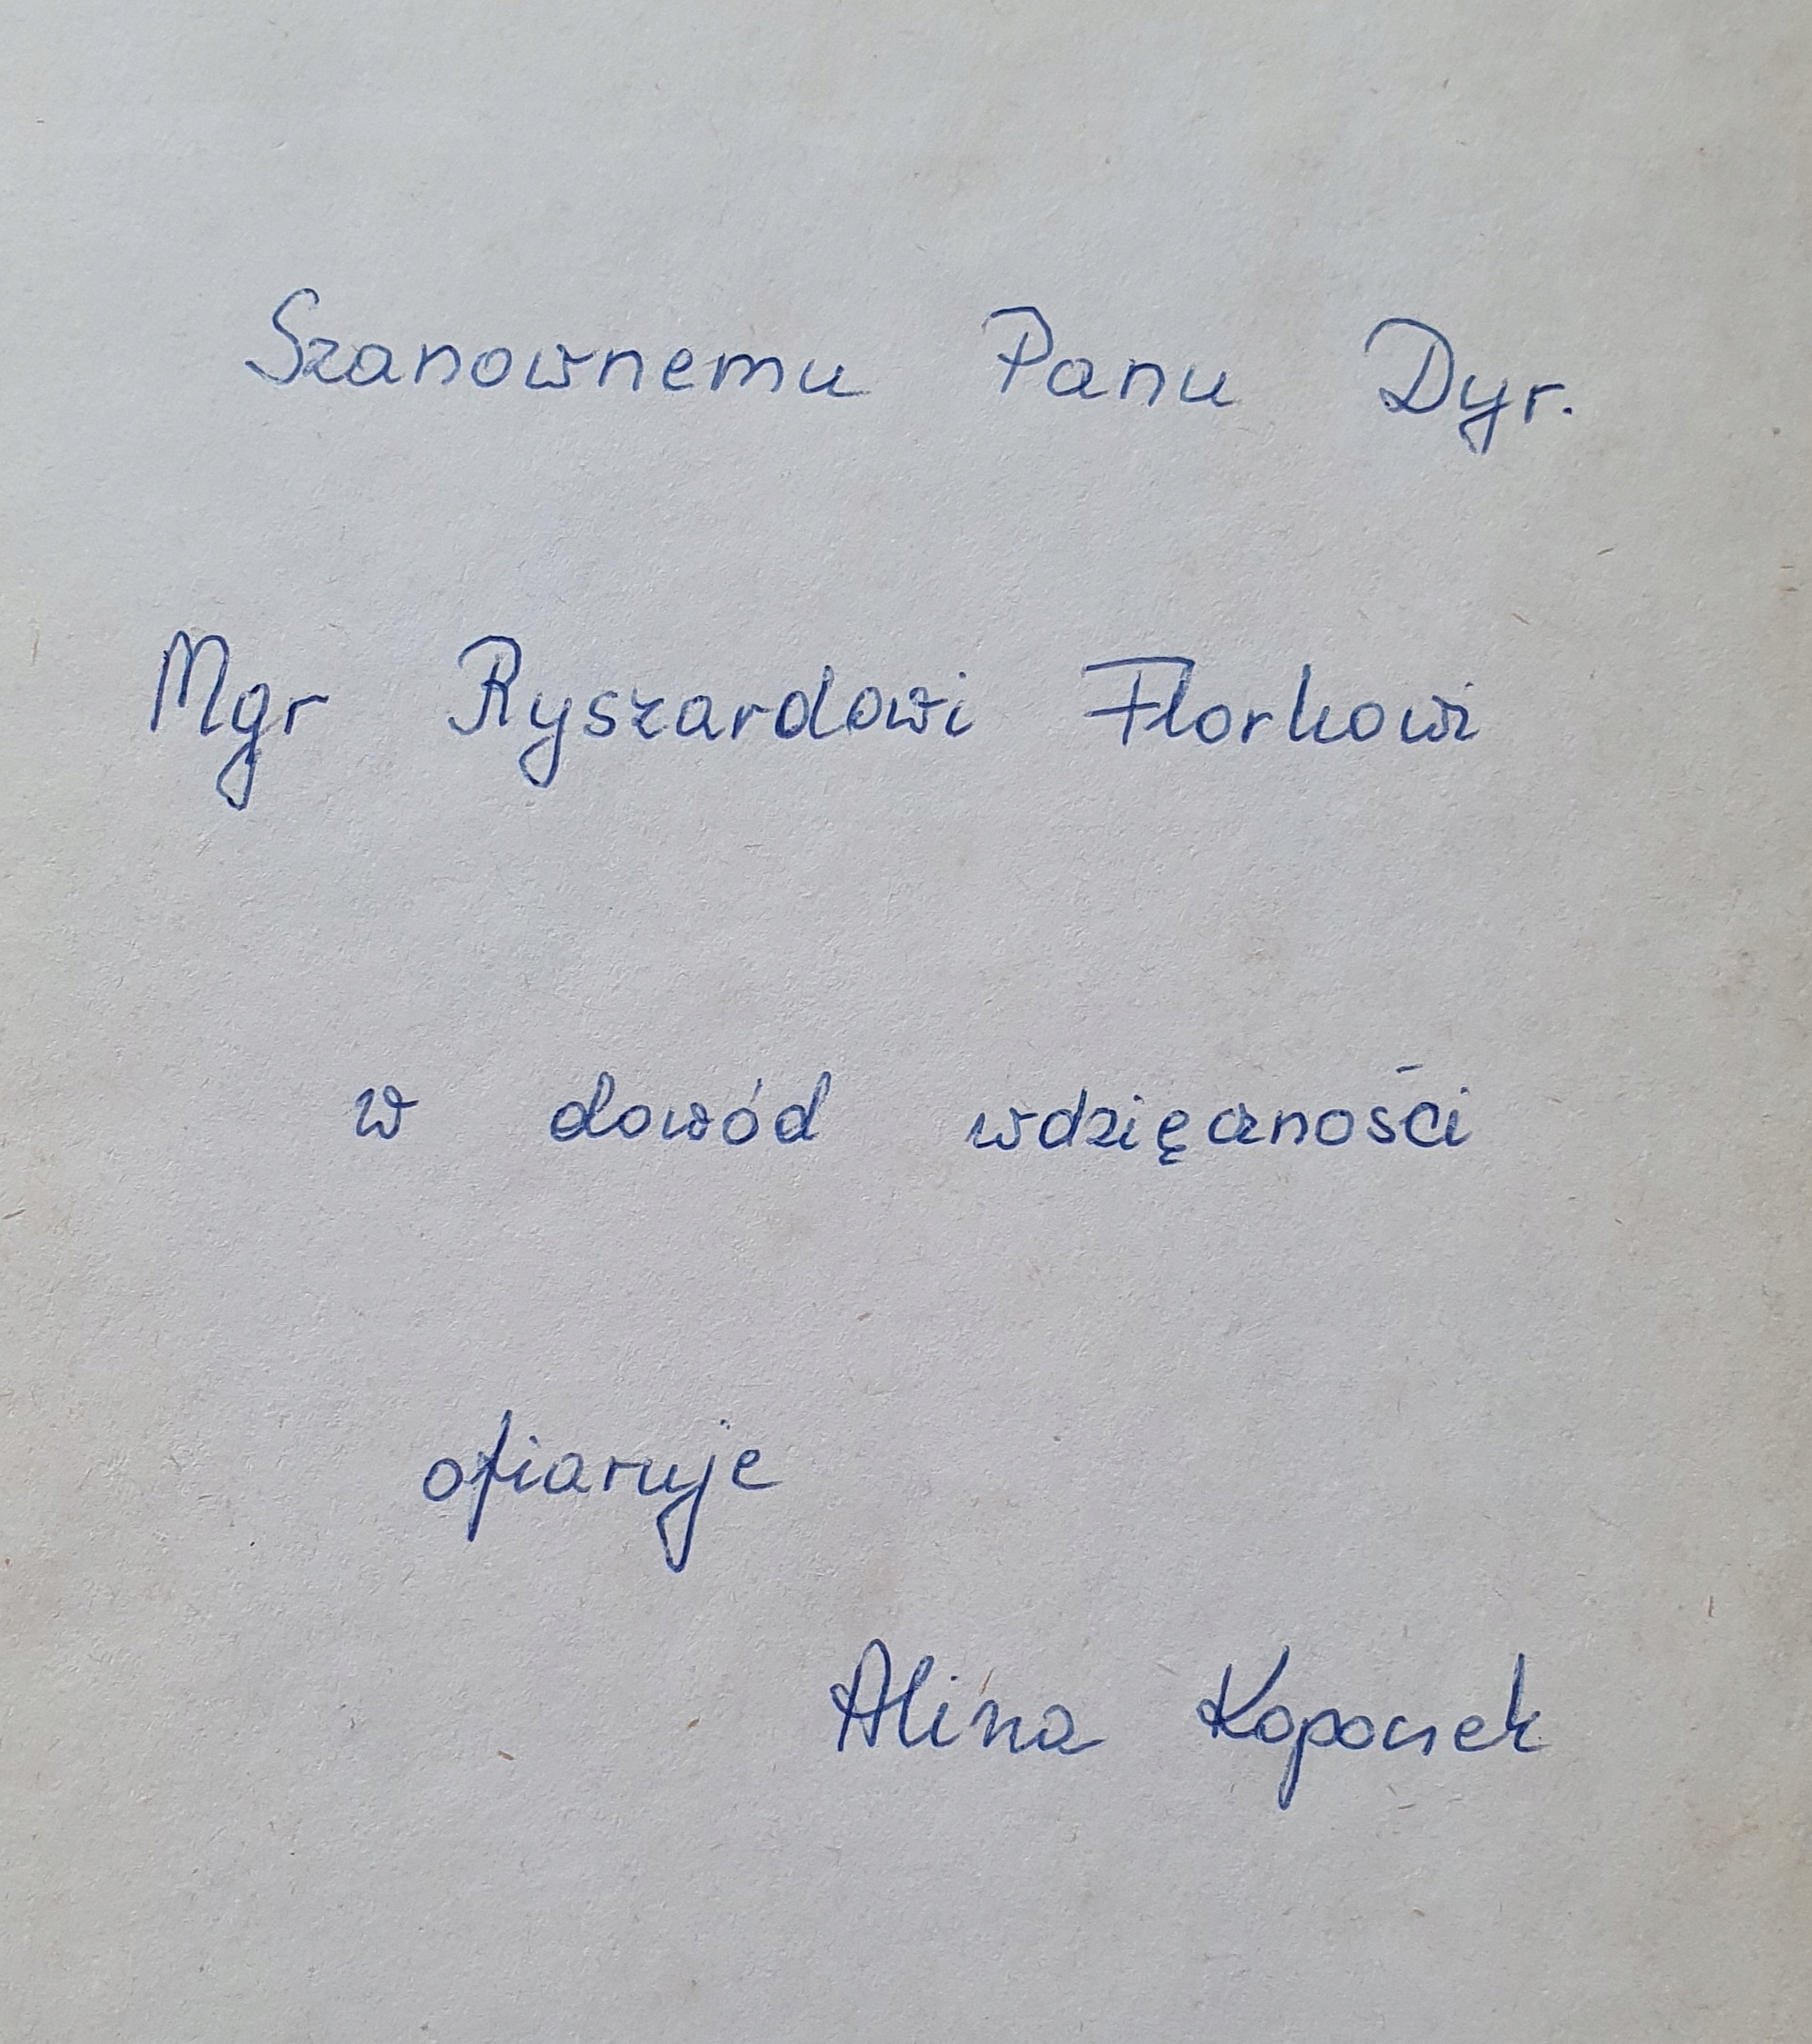 Szanownemu Panu Dyr.
Mgr Ryszardowi Florkowi
w dowód wdzięczności
ofiaruje
Alina